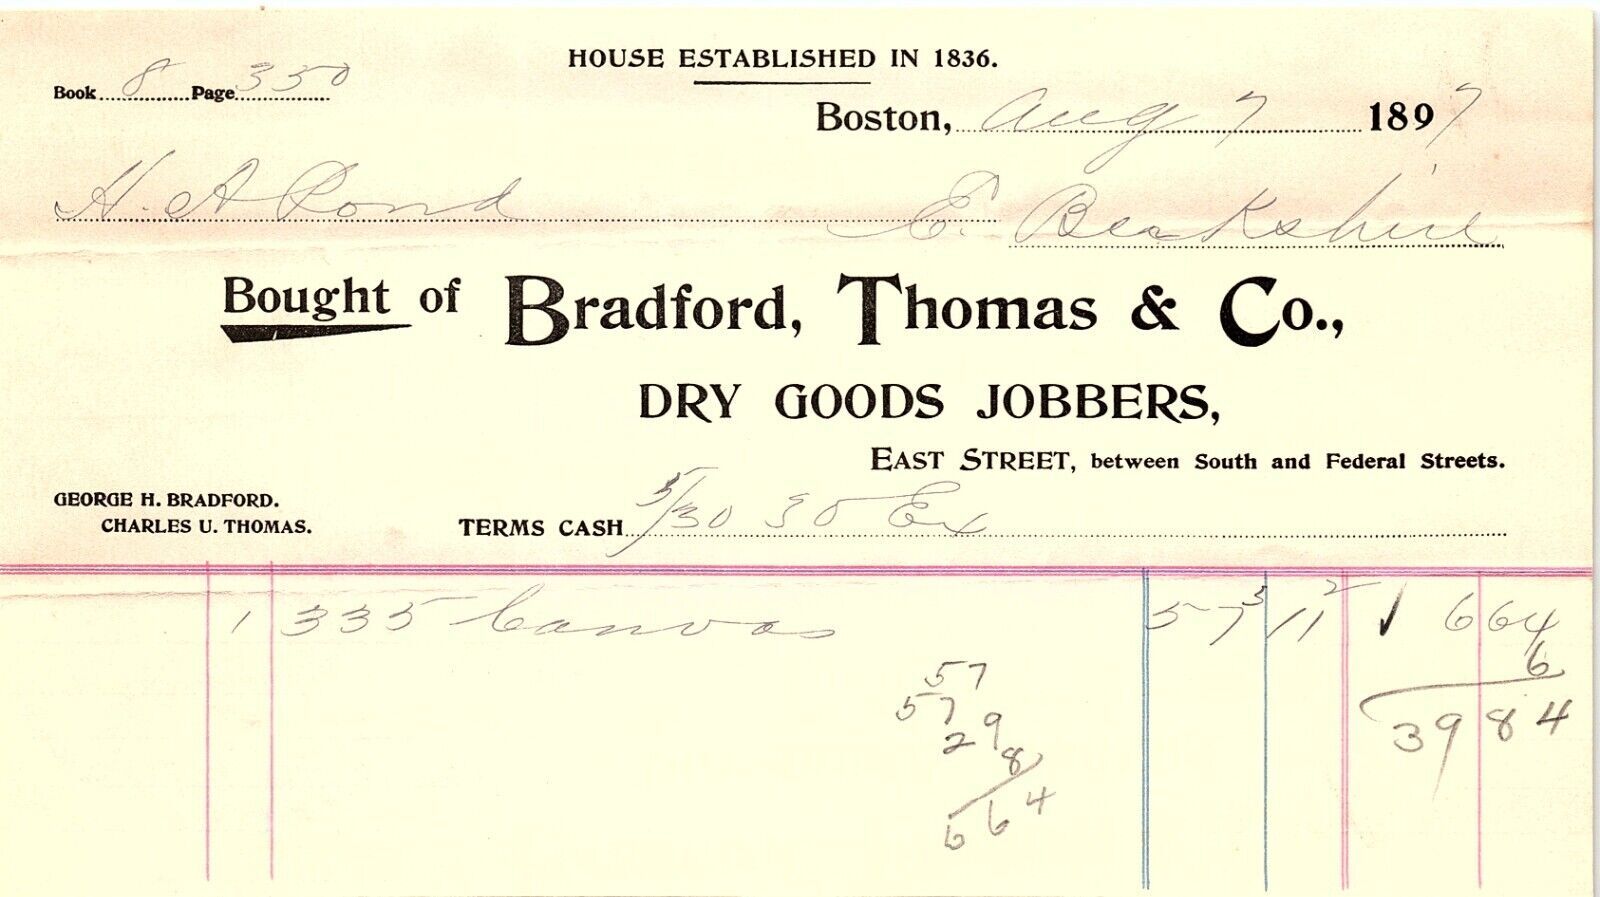 HOUSE ESTABLISHED IN 1836.
Book 8 Page 350
Boston, Aug 7 1897
H. A Pond E. Berkshire
Bought of Bradford, Thomas & Co.,
DRY GOODS JOBBERS,
EAST STREET, between South and Federal Streets.
GEORGE H. BRADFORD.
CHARLES U. THOMAS.
TERMS CASH 5/30 30 Ex
1 335 Canvas 57 3 11 2 ✓ 6 64
6
39 84
57
57
29
8
664